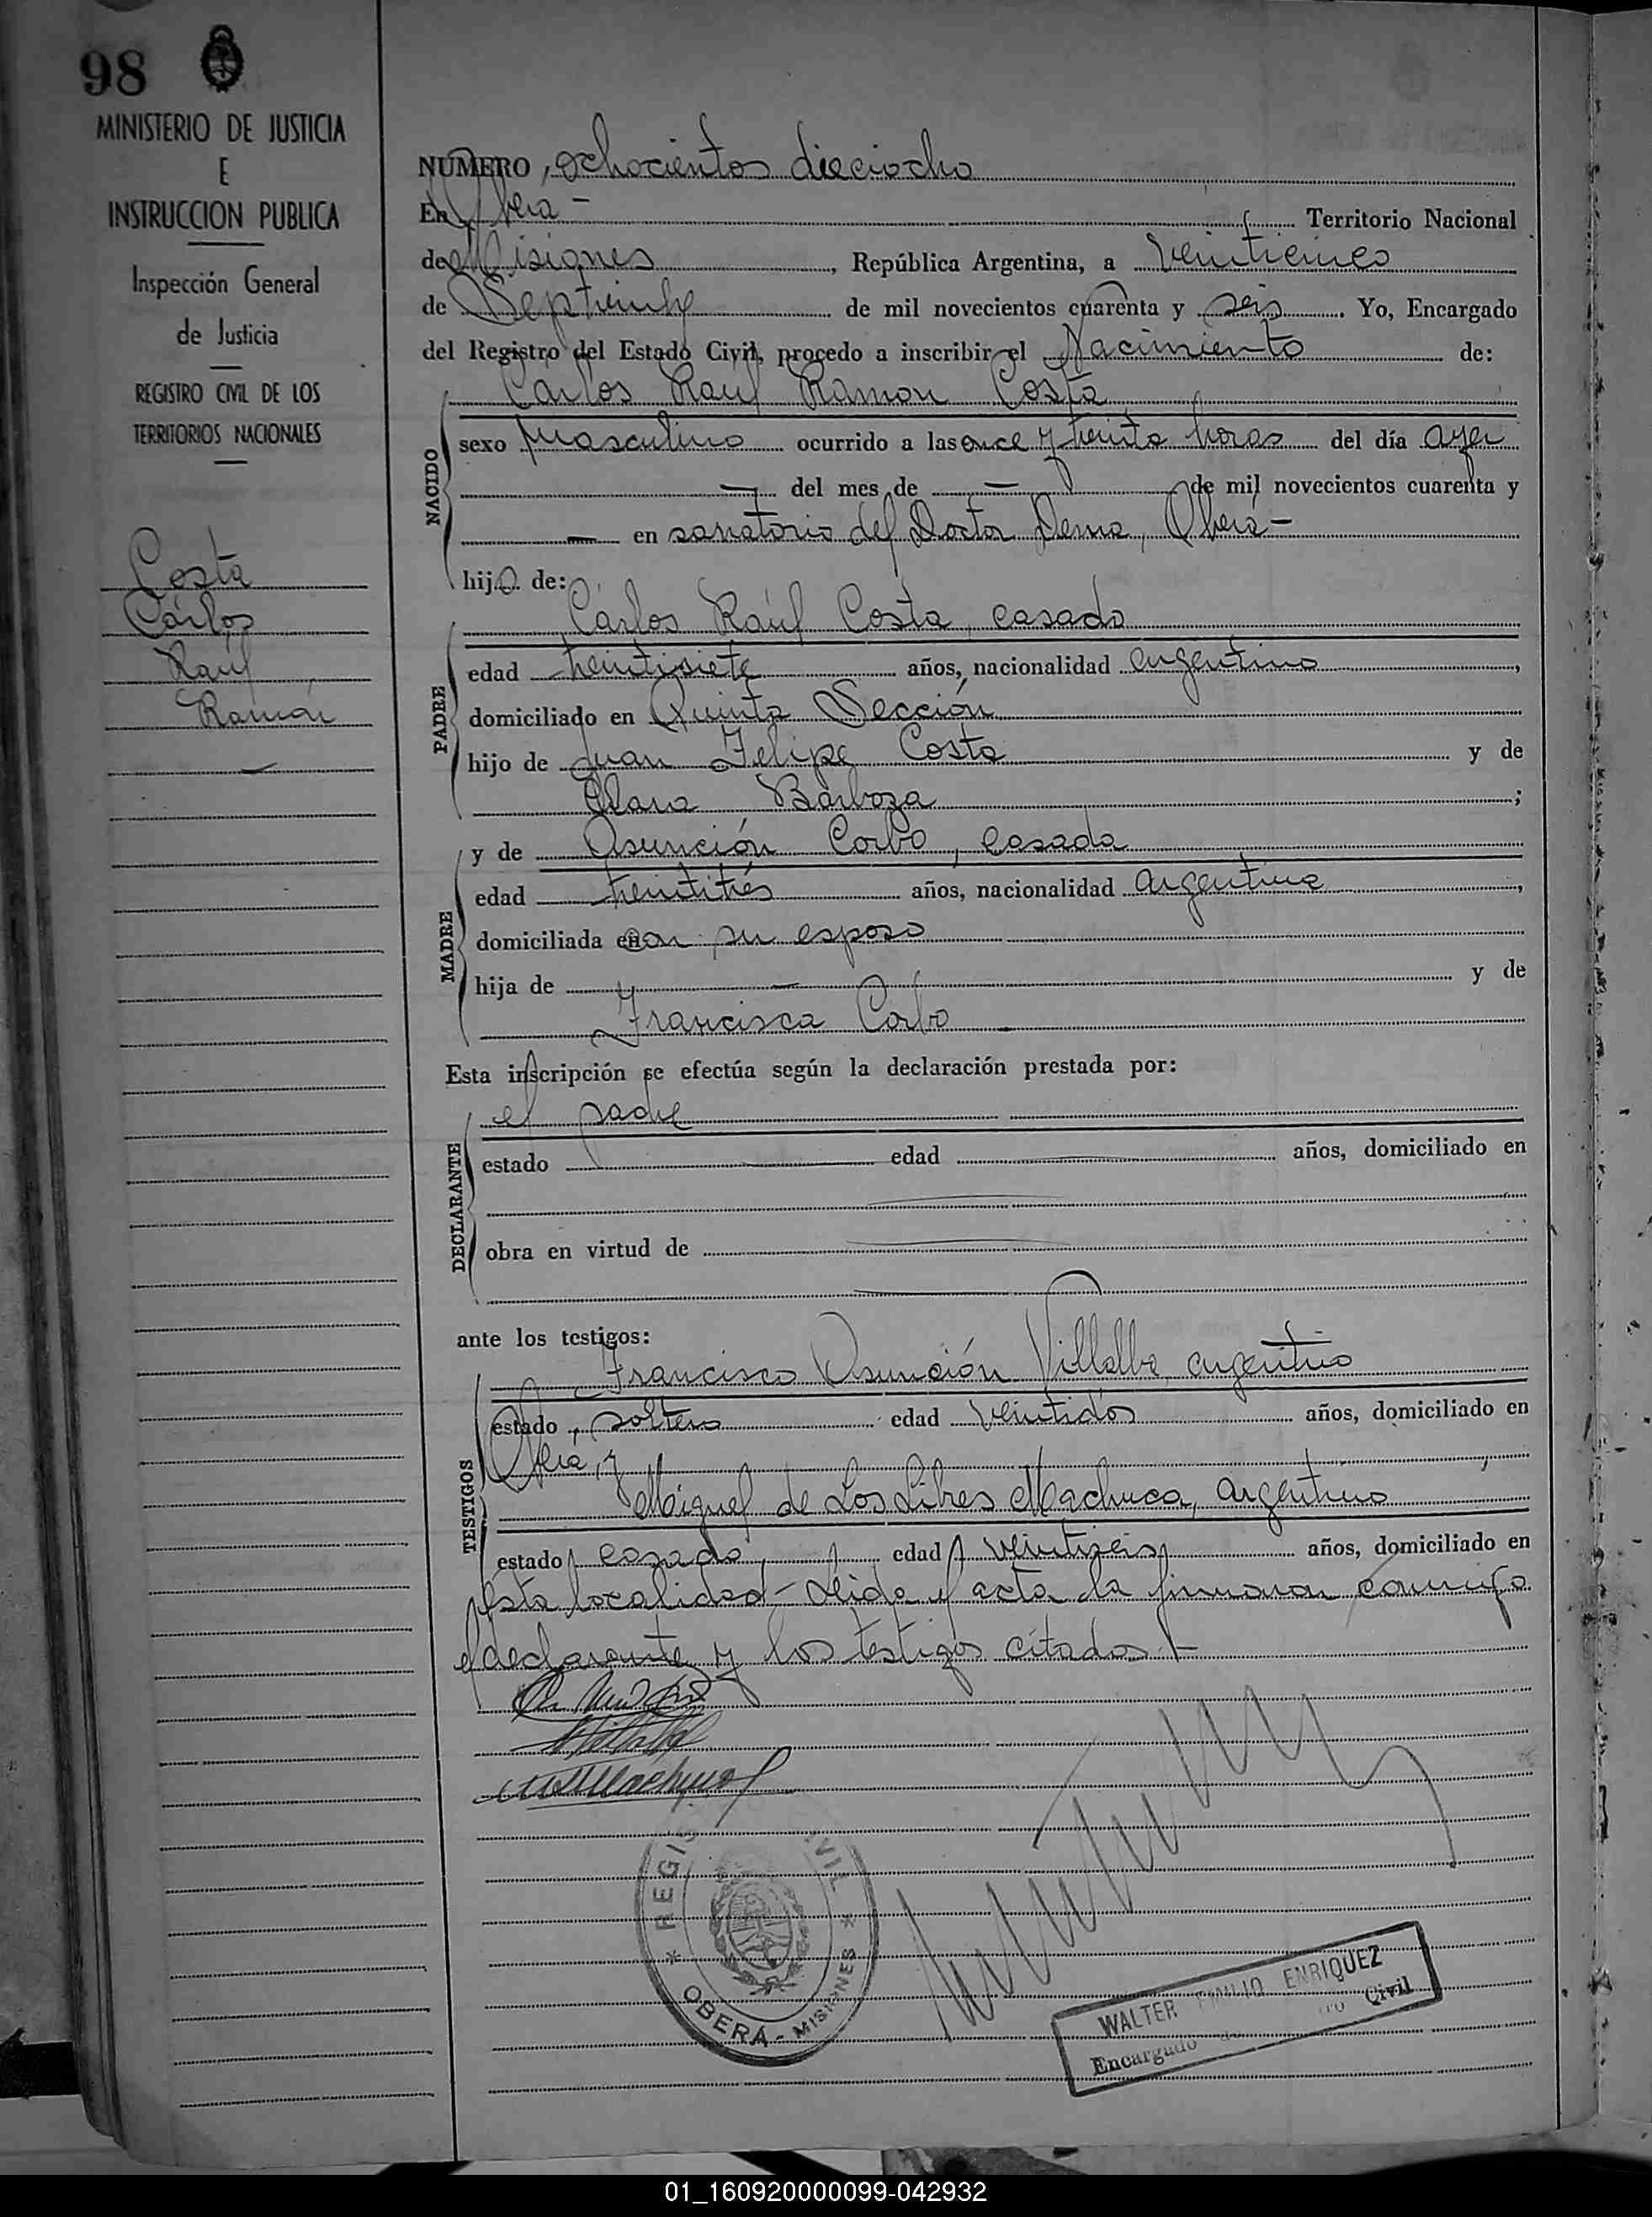 98
MINISTERIO DE JUSTICIA
E
INSTRUCCION PUBLICA
Inspección General
de Justicia
REGISTRO CIVIL DE LOS
TERRITORIOS NACIONALES
Costa
Carlos
Raúl
Ramón
NUMERO, ochocientos dieciocho
En Oberá - Territorio Nacional
de Misiones, República Argentina, a veinticinco
de Septiembre de mil novecientos cuarenta y seis. Yo, Encargado
del Registro del Estado Civil, procedo a inscribir el Nacimiento de:
Carlos Raúl Ramon Costa
NACIDO
sexo masculino ocurrido a las once y treinta horas del día ayer
— del mes de — de mil novecientos cuarenta y
— en sanatorio del Doctor Dema, Oberá -
hijo de:
Carlos Raúl Costa, casado
PADRE
edad treintisiete años, nacionalidad argentino,
domiciliado en Quinta Sección
hijo de Juan Felipe Costa y de
Clara Barboza;
y de Asunción Corbo, casada
MADRE
edad treintitrés años, nacionalidad argentina,
domiciliada con su esposo
hija de — y de
Francisca Corbo
Esta inscripción se efectúa según la declaración prestada por:
el padre
DECLARANTE
estado edad años, domiciliado en
obra en virtud de
ante los testigos:
Francisco Asunción Villalba, argentino
TESTIGOS
estado, soltero edad veintidós años, domiciliado en
Oberá, y
Miguel de Los Libres Machuca, argentino
estado casado, edad veintiseis años, domiciliado en
esta localidad - Leida el acta la firmaron conmigo
el declarante y los testigos citados -
REGIS VIL
* OBERÁ - MISIONES *
WALTER EMILIO ENRIQUEZ
Encargado Civil
01_160920000099-042932